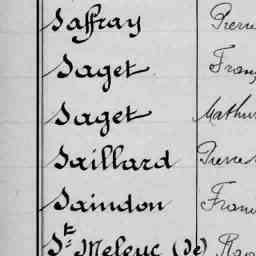 Saffray Pierre
Saget Franç
Saget Mathur
Saillard Pierre
Saindon Fran
St Meleuc (de)